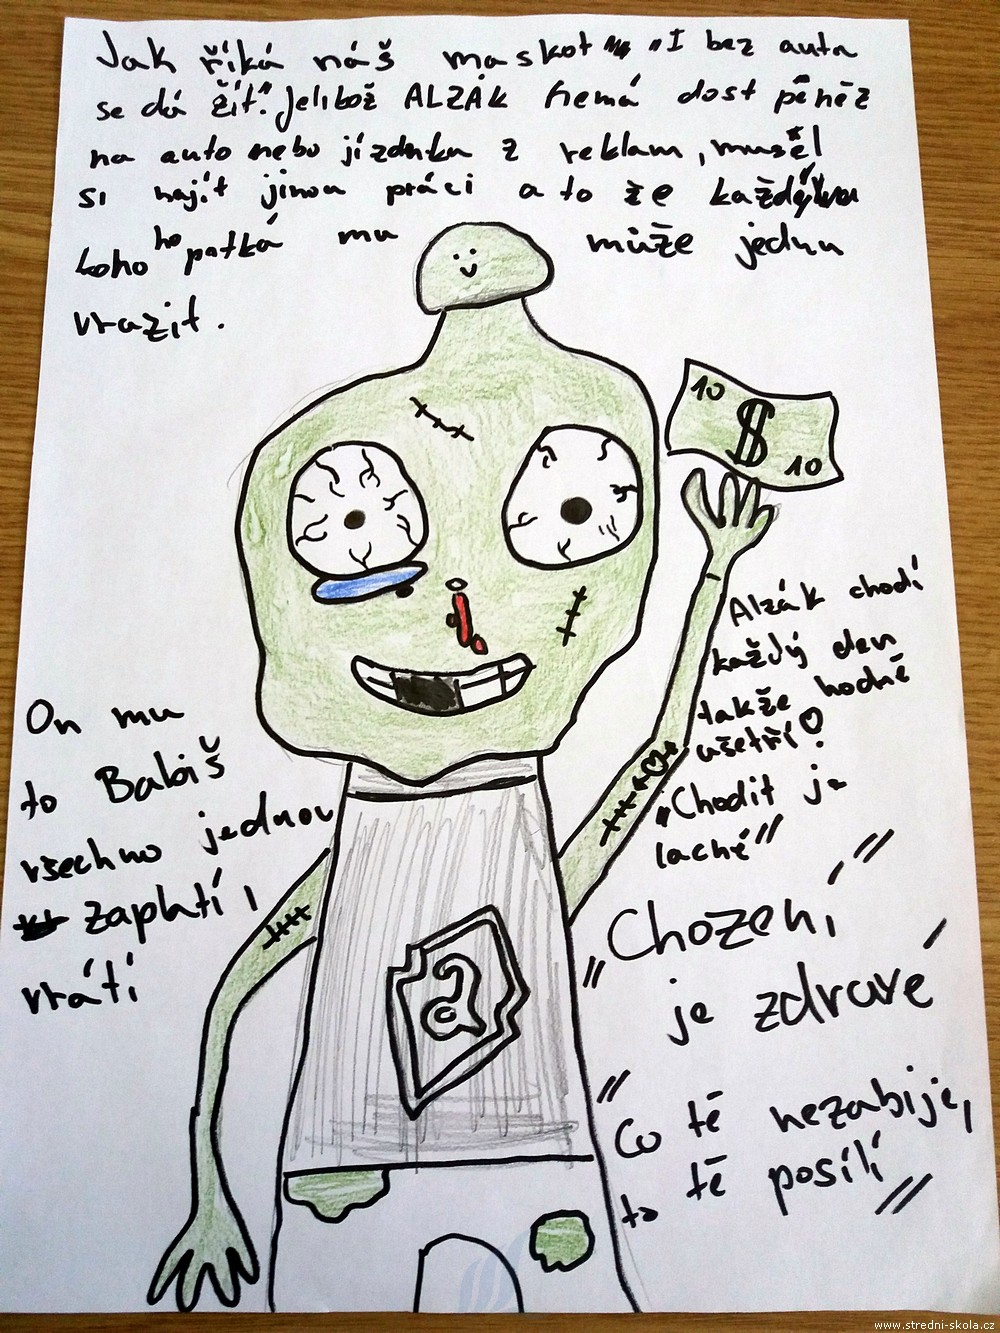 Jak říká náš maskot „I bez auta
se dá žít". Jelibož ALZÁK nemá dost pěněz
na auto nebo jízdnku z reklam, musěl
si najít jinou práci a to že každýmu
koho ho patká mu může jednu
vrazit.
10
$
10
Alzák chodí
každý den
takže hodně
ušetří!
„Chodit je
laché"
On mu
to Babiš
všechno jednou
zaplatí,
vrátí
„Chození
je zdravé"
„Co tě nezabije,
to tě posílí"
www.stredni-skola.cz